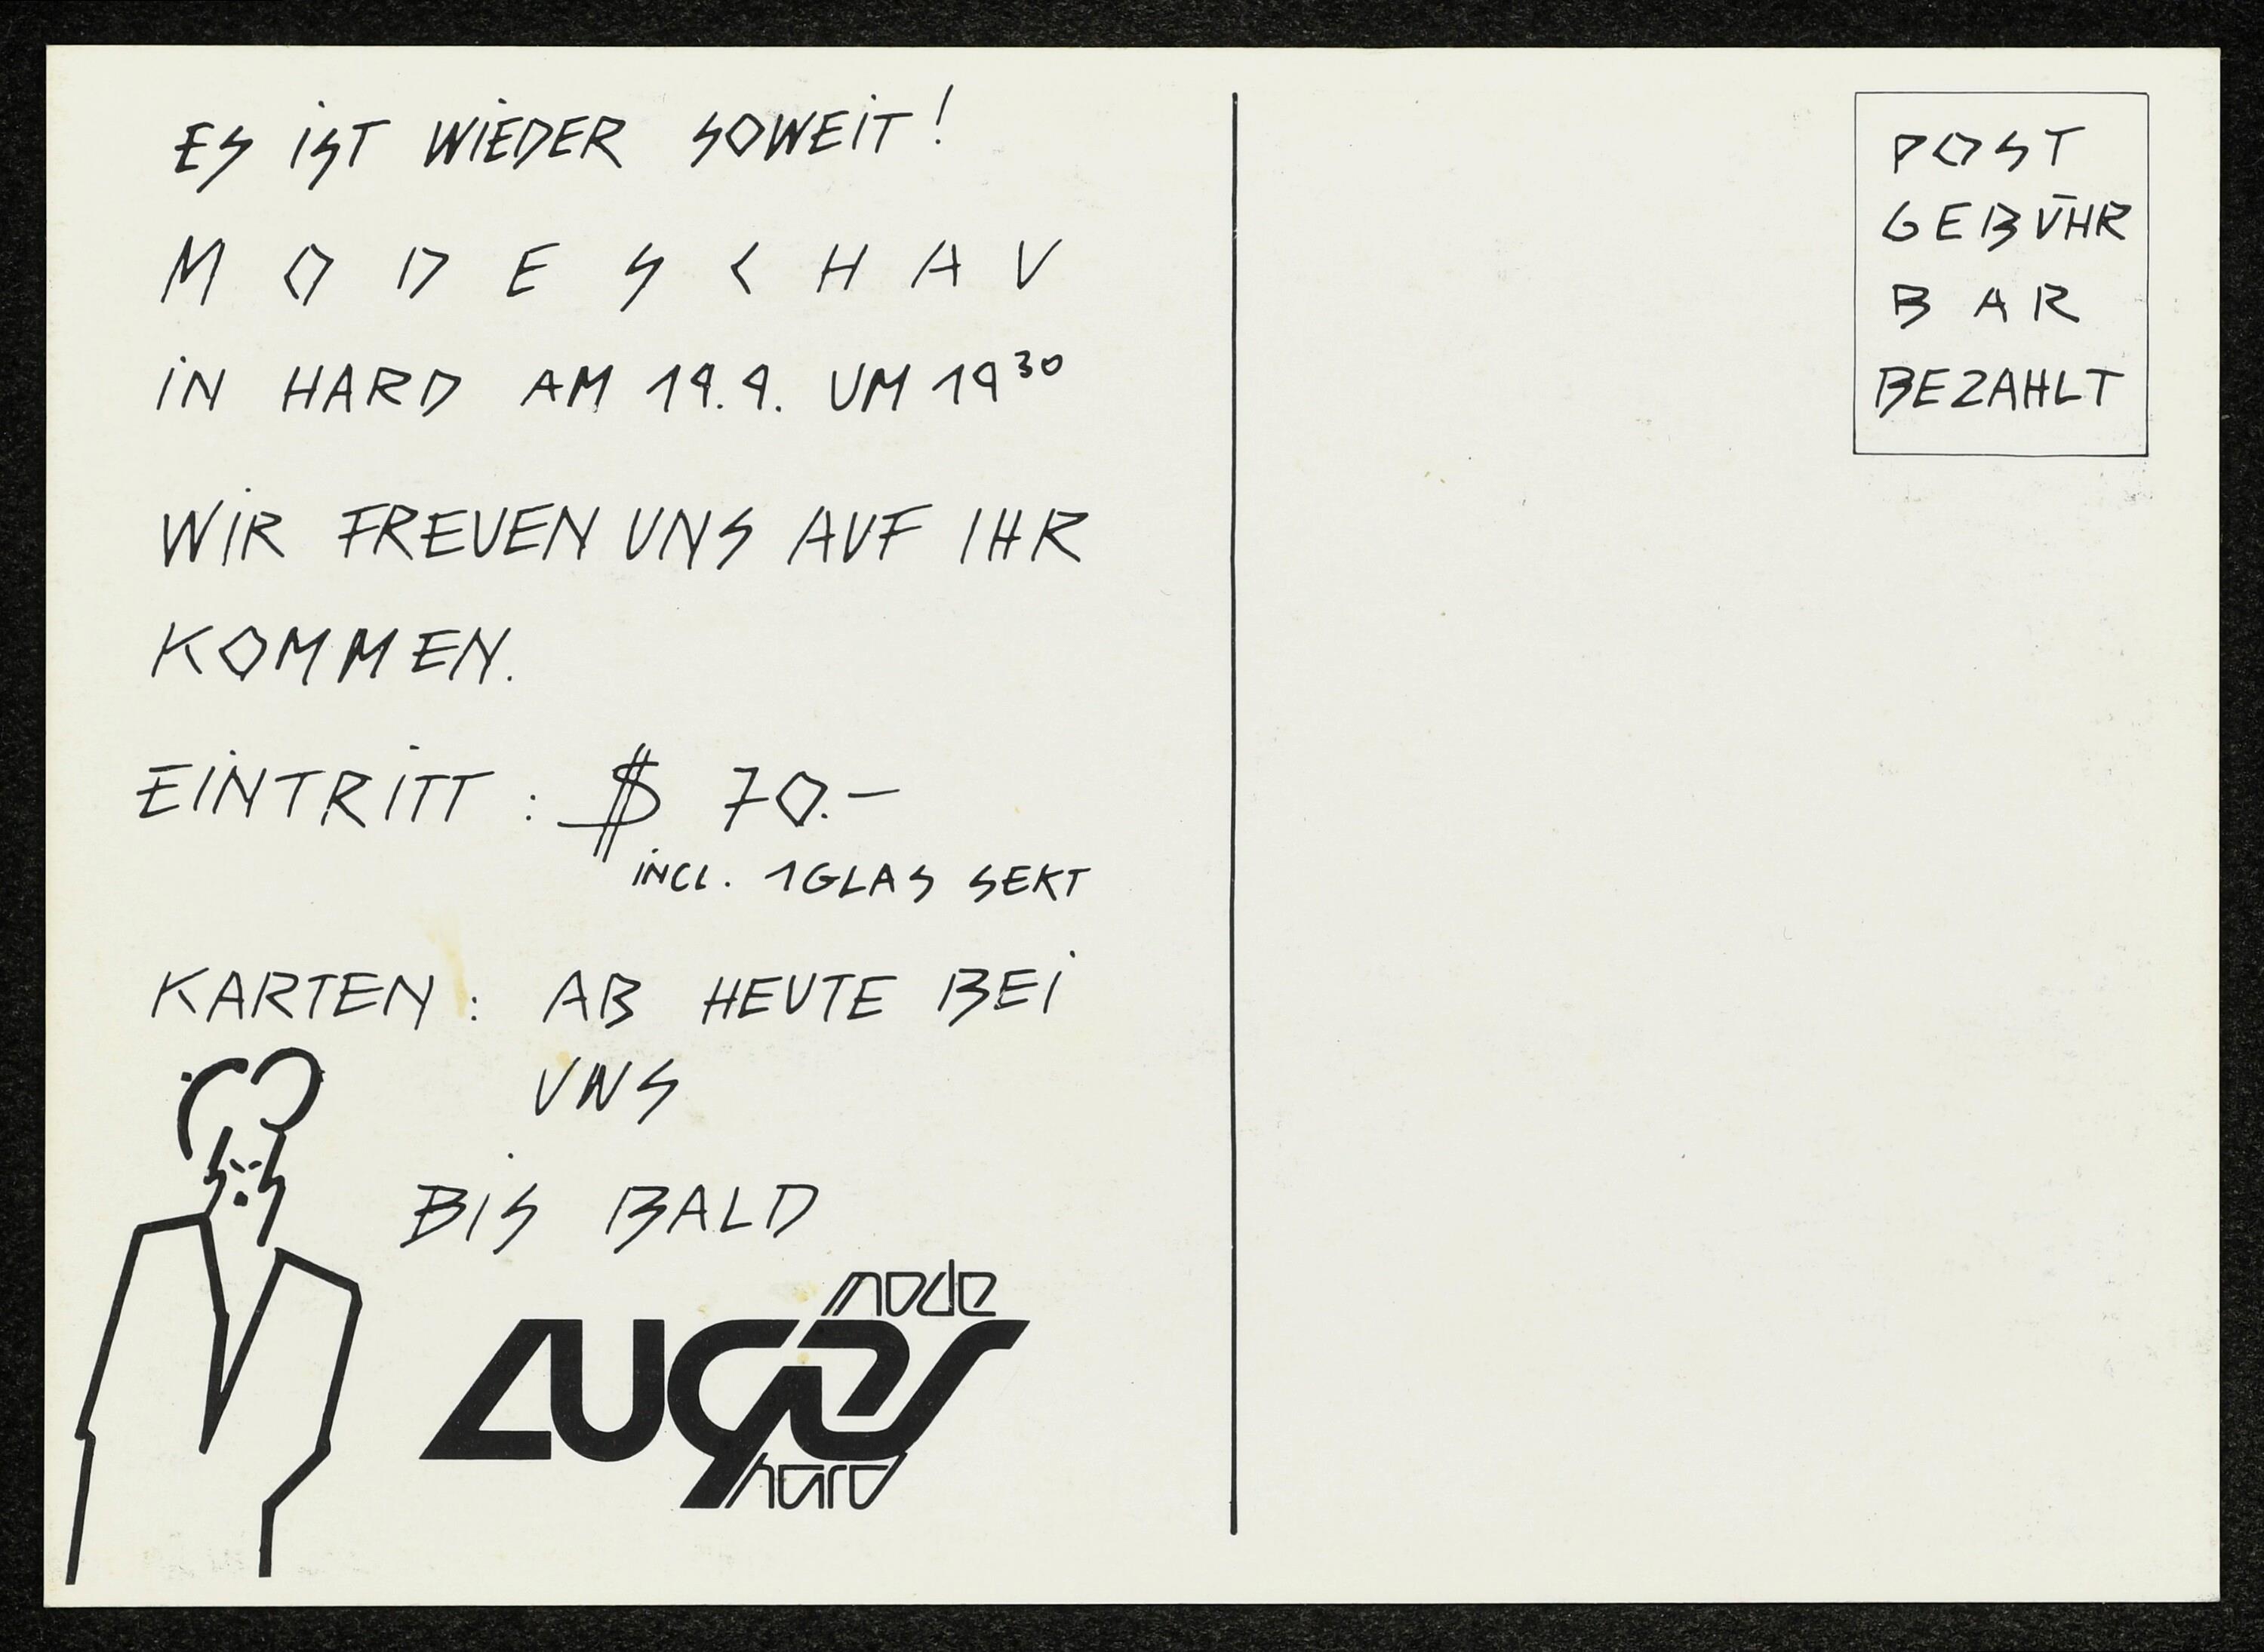 ES IST WIEDER SOWEIT!
MODESCHAU
IN HARD AM 19.9. UM 19³⁰
WIR FREUEN UNS AUF IHR
KOMMEN.
EINTRITT : $ 70.—
INCL. 1 GLAS SEKT
KARTEN : AB HEUTE BEI
UNS
BIS BALD
mode
LUGER
hard
POST
GEBÜHR
BAR
BEZAHLT